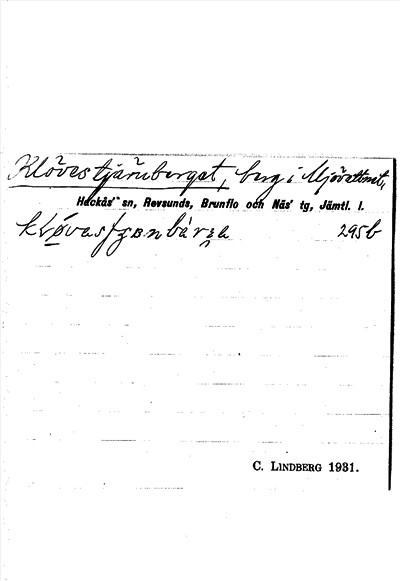 Klövestjärnberget, berg i Mjövattnet,
Hackås' sn, Revsunds, Brunflo och Näs' tg, Jämtl. l.
295b
C. LINDBERG 1931.